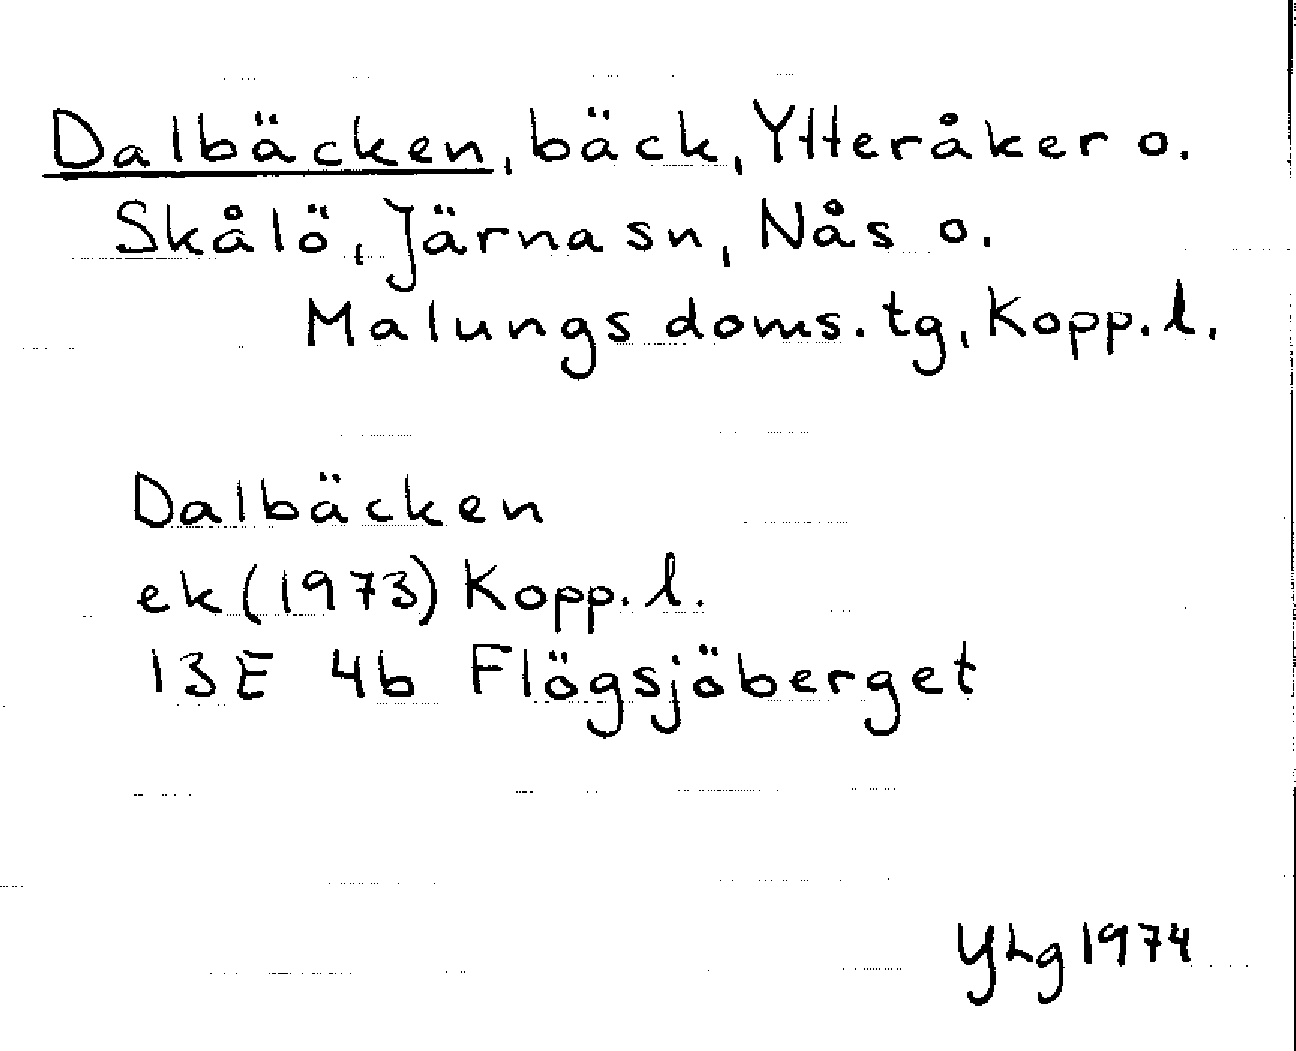 Dalbäcken, bäck, Ytteråker o.
Skålö, Järna sn, Nås o.
Malungs doms. tg, Kopp. l.
Dalbäcken
ek (1973) Kopp. l.
13E 4b Flögsjöberget
YLg 1974